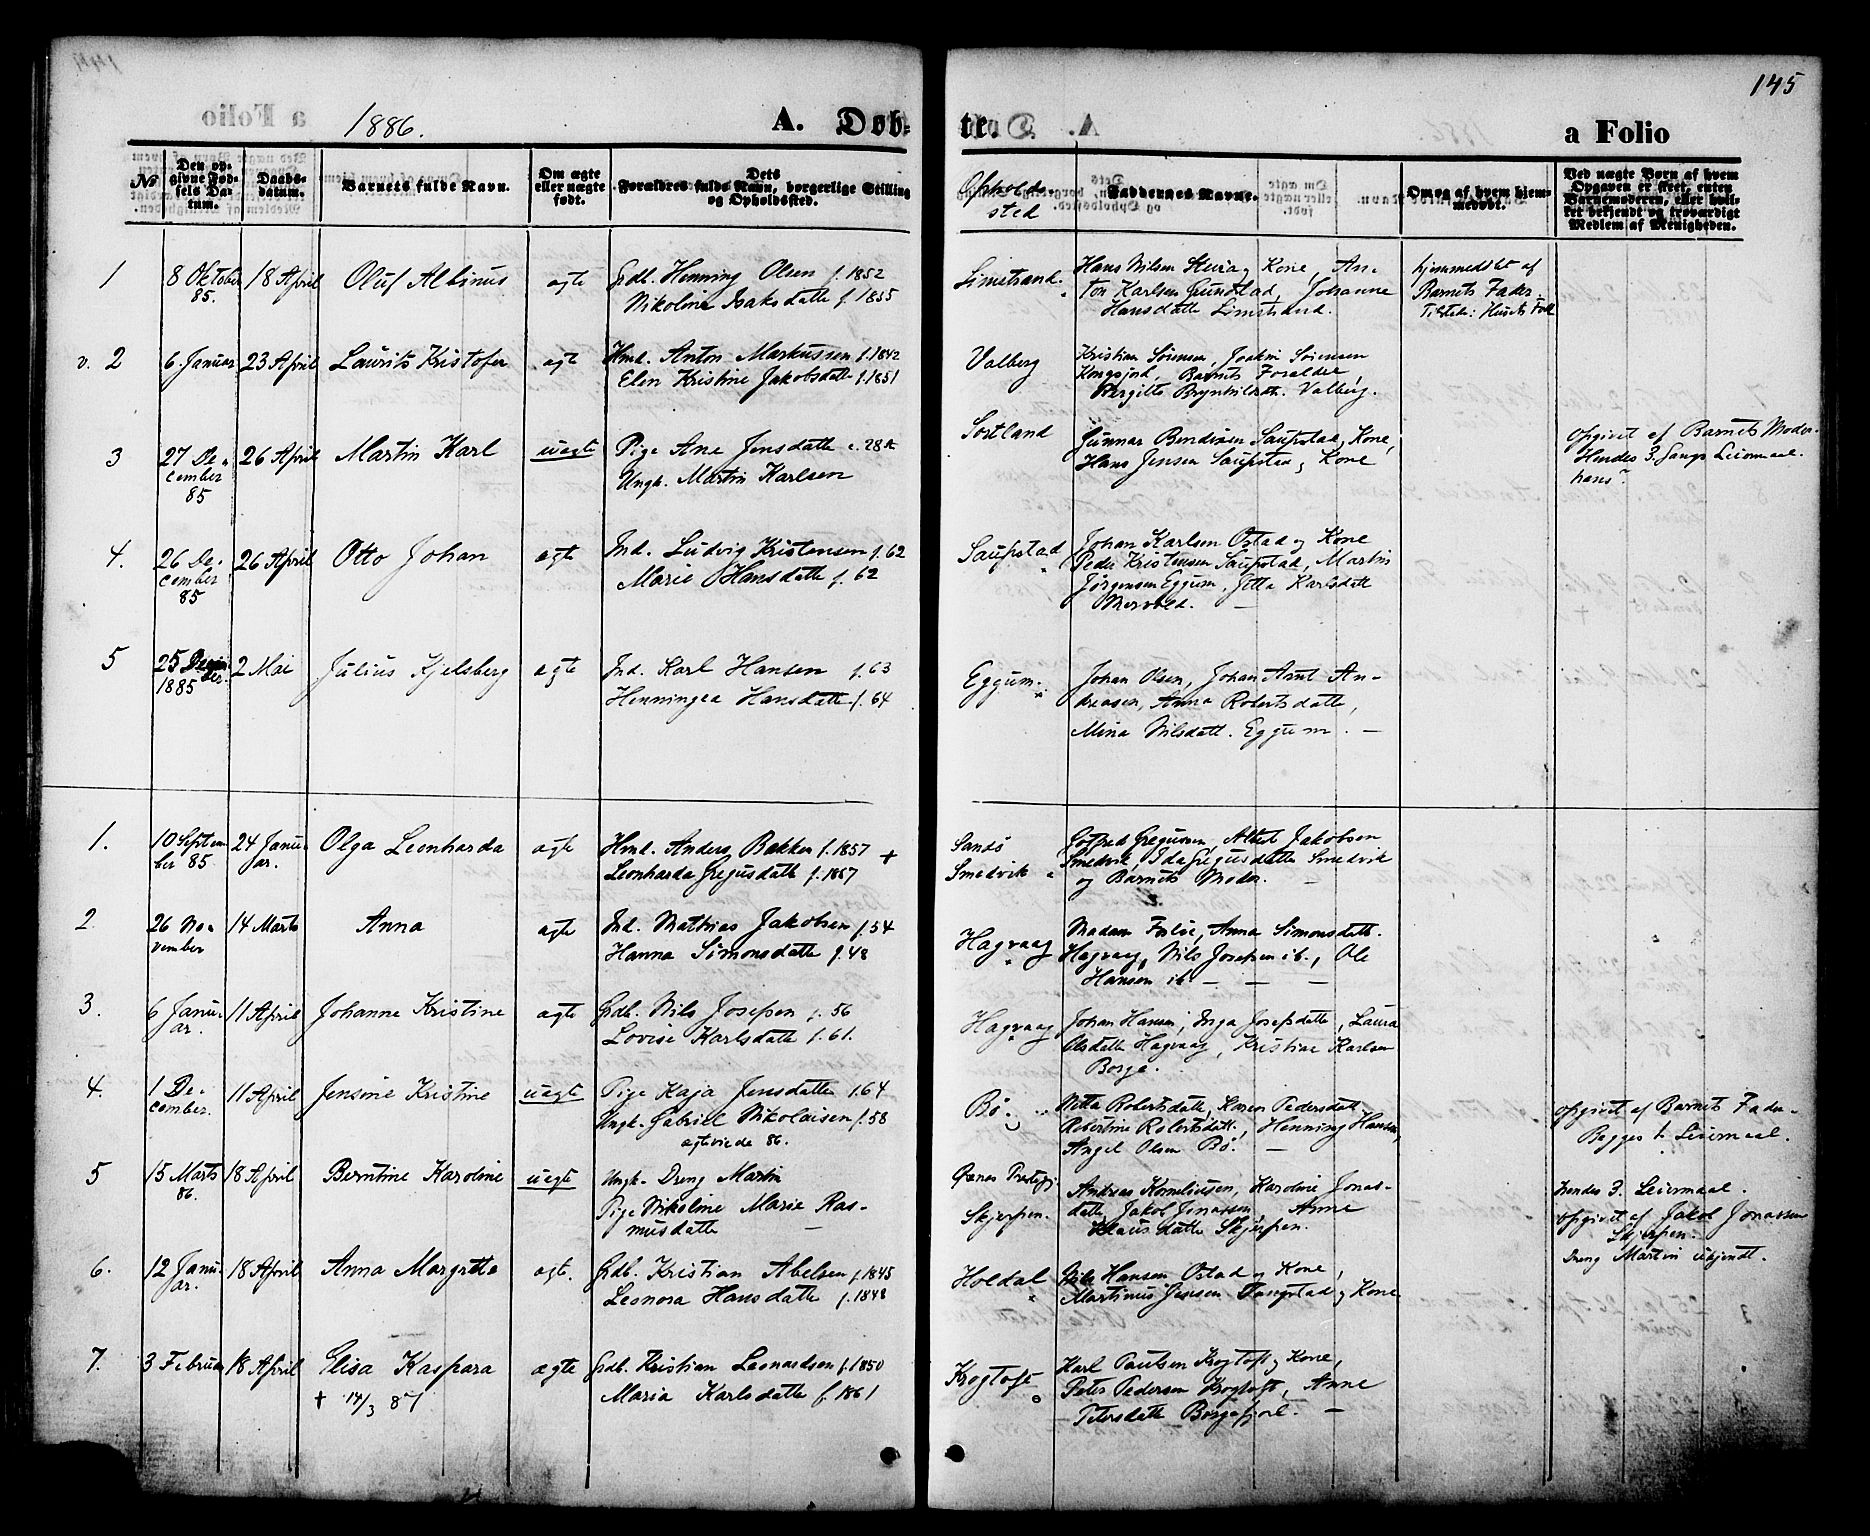 145
1886.
A. Døb-
te.
a Folio
No
Den op-
givne Fød-
sels Da-
tum.
Daabs-
datum.
Barnets fulde Navn.
Om ægte
eller uægte
født.
Dets
Forældres fulde Navn, borgerlige Stilling
og Opholdssted.
Opholds-
sted
Faddernes Navne.
Om og af hvem hjem-
medøbt.
Ved uægte Børn af hvem
Opgaven er skeet, enten
Barnemoderen, eller hvil-
ket bekjendt og troværdigt
Medlem af Menigheden.
1
8 Oktober
85.
18 April
Oluf Albinus
ægte
Gdb. Henning Olsen f. 1852
Nikoline Isaksdatte f. 1855
Limstrand.
Hans Nilsen Kone, An-
ton Karlsen Gundstad, Johanne
Hansdatte Limstrand.
hjemmedøbt af
Barnets Fader.
Tilstede: Husets Folk
v. 2
6. Januar
23 April
Laurits Kristofer
ægte
Hmd. Anton Markussen f. 1842
Elen Kristine Jakobsdatte f. 1851
Valberg
Kristian Sørensen, Joakim Sørensen
Kongsjord, Barnets Forældre,
Birgitte Brynhildsdtr. Valberg.
3
27 De-
cember
85
26 April
Martin Karl
uægte
Pige Ane Jensdatte c. 28 A
Ungk. Martin Karlsen
Sortland
Gunnar Bendixen Saupstad, Kone,
Hans Jensen Saupstad og Kone
Opgivet af Barnets Moder.
Hendes 3. Gangs Leiermaal.
hans?
4.
26 De-
cember
85
26 April
Otto Johan
ægte
Ind. Ludvig Kristensen f. 62
Marie Hansdatte f. 62
Saupstad
Johan Karlsen Ostad og Kone
Peder Kristensen Saupstad, Martin
Jörgensen Eggum, Jetta Karlsdatte
Mervold.
5
25 Decem-
ber
1885
2 Mai
Julius Kjelsberg
ægte
Ind. Karl Hansen f. 63
Henningea Hansdatte f. 64
Eggum.
Johan Olsen, Johan Arnt An-
dreasen, Anna Robertsdatte,
Mina Nilsdatt. Eggum. —
1.
10 Septem
ber 85.
24 Janu-
ar.
Olga Leonharda
ægte
Hmd. Anders Bakken f. 1857 +
Leonharda Gregusdatte f. 1857
Sandö
Smedvik
Gotfred Gregusen, Albert Jakobsen
Smedvik, Ida Gregusdatte Smedvik
og Barnets Moder. —
2.
26 No-
vember
14 Marts
Anna
ægte
Ind. Mathias Jakobsen f. 54
Hanna Simonsdatte f. 48
Hagvaag
Madam Anna Simonsdatt.
Hagvaag, Nils Josepsen ib., Ole
Hansen ib — — —
3.
6 Janu-
ar.
11 April
Johanne Kristine
ægte
Gdb. Nils Josepsen f. 56
Lovise Karlsdatte f. 61.
Hagvaag
Johan Hansen, Inga Josepsdatte, Laura
Olsdatte Hagvaag, Kristine Karlsen
Borge.
4.
1 De-
cember.
11 April
Jensine Kristine
uægte
Pige Kaja Jensdatte f. 64
Ungk. Gabriel Nikolaisen f. 58
ægteviede 86.
Bö.
Netta Robertsdatte, Karen Pedersdatt.
Robertine Robertsdatt., Henning Hansen,
Angel Olsen Bö. —
Opgivet af Barnets Fader.
Begges 1. Leiermaal.
5
15 Marts
86.
18 April
Berntine Karoline
uægte
Ungk. Dreng Martin
Pige Nikoline Marie Ras-
musdatte —
Skjerpen.
Andreas Korneliusen, Karoline Jonas-
datte, Jakob Jonassen, Anne
Klausdatte Skjerpen.
Hendes 3. Leiermaal.
Opgivet af Jakob Jonassen
Skjerpen.
Dreng Martin ubkjendt.
6.
12 Janu-
ar.
18 April
Anna Margrethe
ægte.
Gdb. Kristian Abelsen f. 1845
Leonora Hansdatte f. 1848
Holdal
Nils Hansen Ostad og Kone,
Martinus Jensen Tangstad og Kone
7.
3 Februar
18 April
Elisa Kaspara
+ 14/3 87
ægte
Gdb. Kristian Leonardsen f. 1850
Maria Karlsdatte f. 1861
Krogtoft
Karl Paulsen Krogtoft og Kone,
Peter Pedersen Krogtoft, Anne
Petersdatte Borgefjord. —